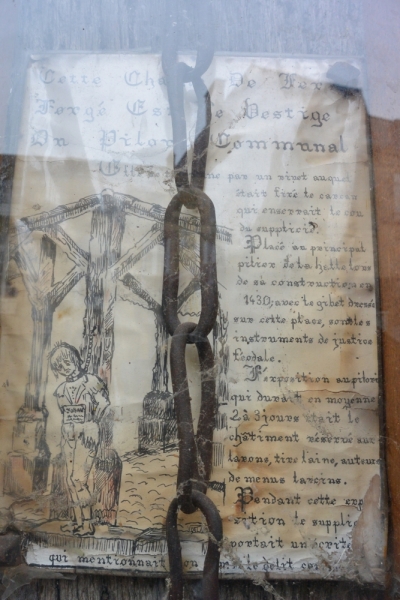 Cette De Fer
Forgé Vestige
Du Communal
par un rivet auquel
était fixé le carcan
qui enserrait le cou
du supplicié.
Placé au principal
pilier de la halle lors
de sa construction en
1430; avec le gibet dressé
sur cette place, sont les
instruments de justice
féodale.
L'exposition au pilori
qui durait en moyenne
2 à 3 jours était le
châtiment réservé aux
larons, tire laine, auteurs
de menus larcins.
Pendant cette
le supplicié
portait un écrite
qui mentionnait le délit